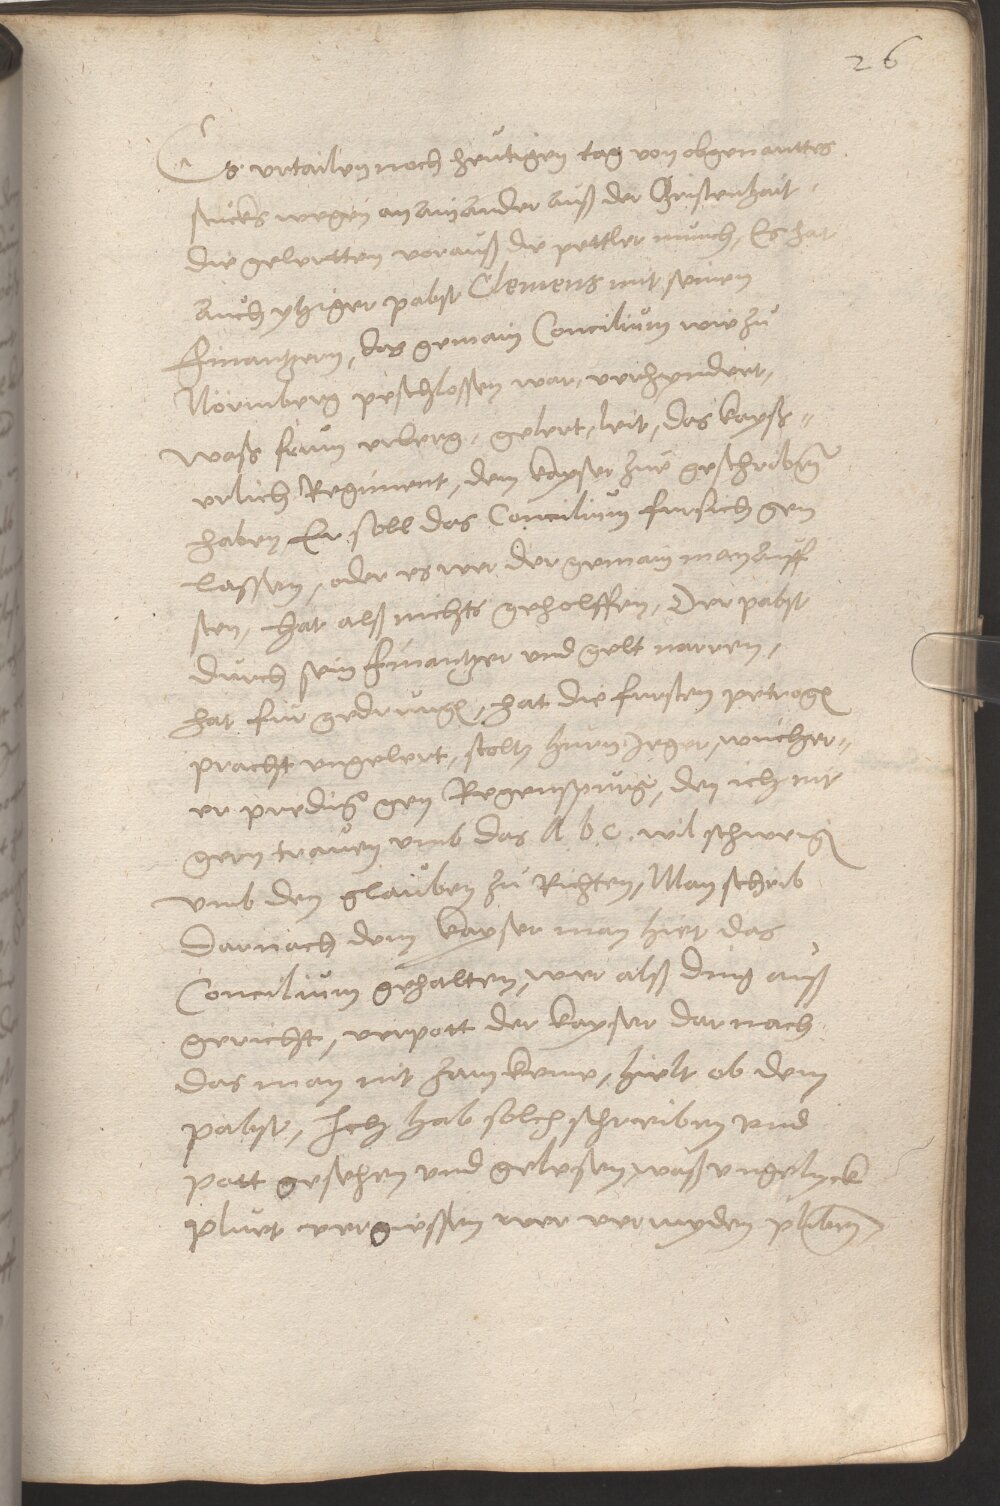 26
Es urtailen noch heutigen tag von obgenanttes
stucks wegen an ainander auß der Christenhait
die gelertten vorauß die pettler munch, Es hat
auch ytziger pabst Clemens mit seinen
finantzern, das gemain Concilium wie zu
Nörmberg peschlossen war, verhyndert,
waß frum erberg, gelert, leit, das kayß=
erlich Regiment, dem kayser zue geschriben
haben, Er soll das Concilium fursich gen
lassen, oder es wer der gemain man auff
sten, Hat alß nichts geholffen, Der pabst
durch sein finantzer und gelt narren,
hat fur gedrungen, hat die fursten petrogen
pracht ungelert, stoltz hurn Jeger, wucher=
er prediger gen Regenspurg, den ich nit
gern trauen umb das A b c. wil schweigen
umb den glauben zu Richten, Man schrib
Darnach dem kayser man hiet das
Concilium gehalten, wer alß ding auß
gericht, verpott der kayser darnach
das man nit zam keme, hielt ob dem
pabst, Ich hab solch schreiben und
pott gesehen und gelesen, waß ungelyck
pluet vergiessen wer vermyden pliben